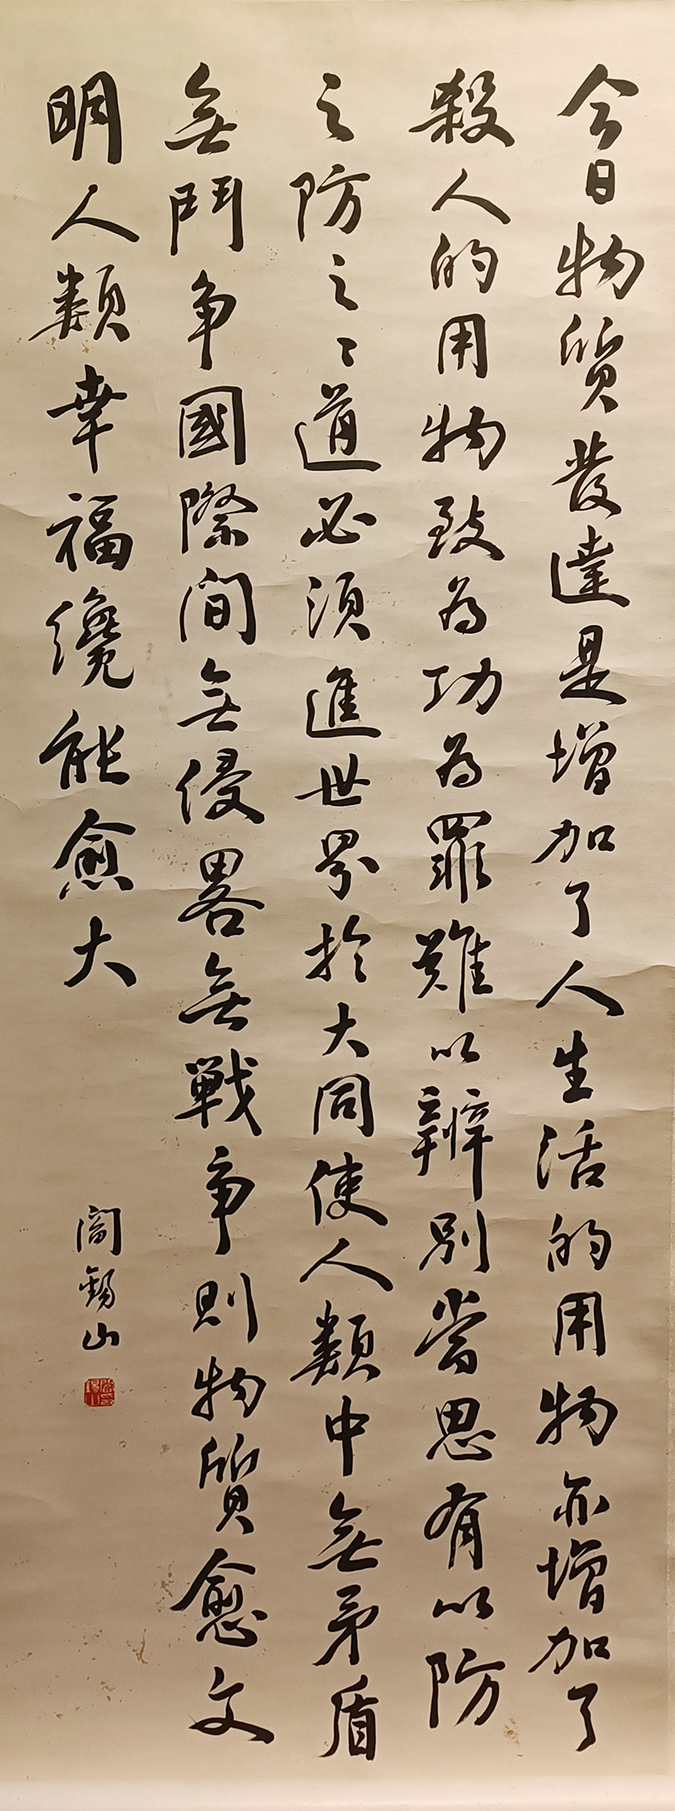 今日物質發達是增加了人生活的用物亦增加了
殺人的用物致為功為罪難以辨別當思有以防
之防之〻道必須進世界於大同使人類中無矛盾
無鬥爭國際間無侵畧無戰爭則物質愈文
明人類幸福纔能愈大
閻錫山